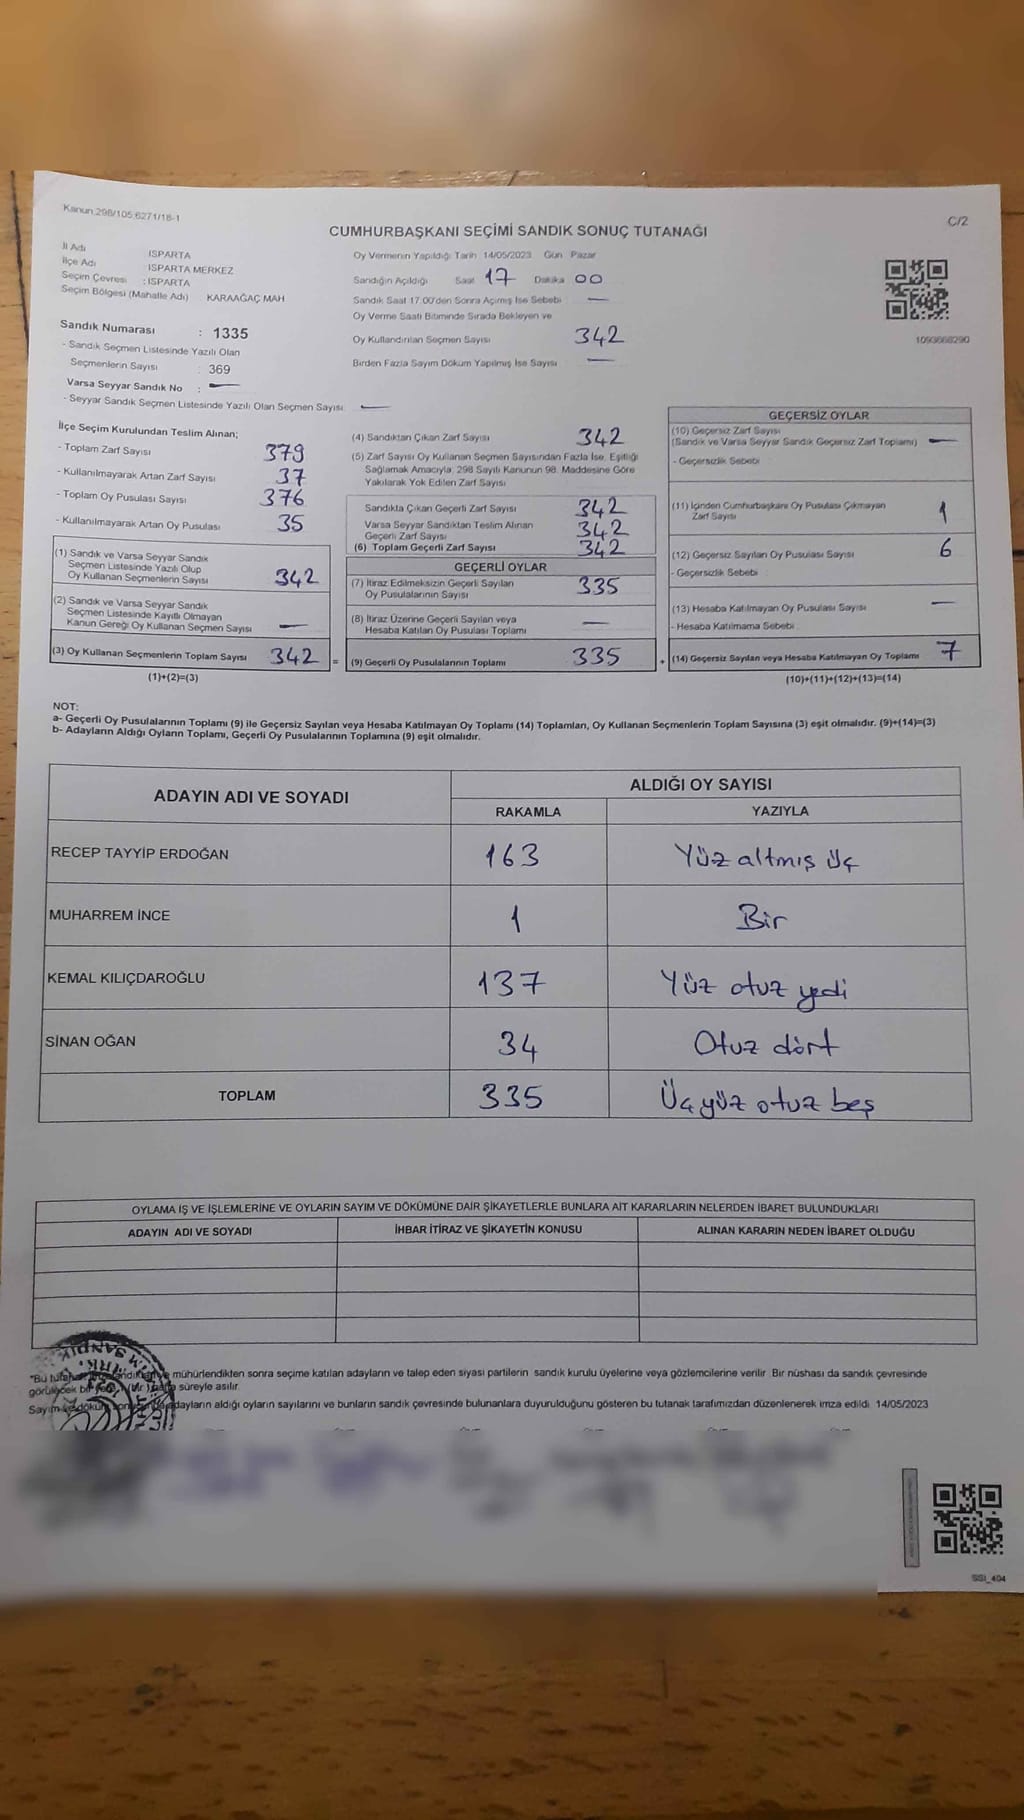 Kanun:298/105,6271/18-1
C/2
CUMHURBAŞKANI SEÇİMİ SANDIK SONUÇ TUTANAĞI
İl Adı ISPARTA
İlçe Adı ISPARTA MERKEZ
Seçim Çevresi : ISPARTA
Seçim Bölgesi (Mahalle Adı) KARAAĞAÇ MAH
Sandık Numarası : 1335
- Sandık Seçmen Listesinde Yazılı Olan
Seçmenlerin Sayısı : 369
Varsa Seyyar Sandık No : —
- Seyyar Sandık Seçmen Listesinde Yazılı Olan Seçmen Sayısı —
Oy Vermenin Yapıldığı Tarih 14/05/2023 Gün Pazar
Sandığın Açıldığı Saat 17 Dakika 00
Sandık Saat 17.00'den Sonra Açılmış İse Sebebi —
Oy Verme Saati Bitiminde Sırada Bekleyen ve
Oy Kullandırılan Seçmen Sayısı 342
Birden Fazla Sayım Döküm Yapılmış İse Sayısı —
1093668290
İlçe Seçim Kurulundan Teslim Alınan;
- Toplam Zarf Sayısı 379
- Kullanılmayarak Artan Zarf Sayısı 37
- Toplam Oy Pusulası Sayısı 376
- Kullanılmayarak Artan Oy Pusulası 35
(1) Sandık ve Varsa Seyyar Sandık
Seçmen Listesinde Yazılı Olup
Oy Kullanan Seçmenlerin Sayısı 342
(2) Sandık ve Varsa Seyyar Sandık
Seçmen Listesinde Kayıtlı Olmayan
Kanun Gereği Oy Kullanan Seçmen Sayısı —
(3) Oy Kullanan Seçmenlerin Toplam Sayısı 342 =
(1)+(2)=(3)
(4) Sandıktan Çıkan Zarf Sayısı 342
(5) Zarf Sayısı Oy Kullanan Seçmen Sayısından Fazla İse, Eşitliği
Sağlamak Amacıyla, 298 Sayılı Kanunun 98. Maddesine Göre
Yakılarak Yok Edilen Zarf Sayısı
Sandıkta Çıkan Geçerli Zarf Sayısı 342
Varsa Seyyar Sandıktan Teslim Alınan
Geçerli Zarf Sayısı 342
(6) Toplam Geçerli Zarf Sayısı 342
GEÇERLİ OYLAR
(7) İtiraz Edilmeksizin Geçerli Sayılan
Oy Pusulalarının Sayısı 335
(8) İtiraz Üzerine Geçerli Sayılan veya
Hesaba Katılan Oy Pusulası Toplamı —
(9) Geçerli Oy Pusulalarının Toplamı 335 +
GEÇERSİZ OYLAR
(10) Geçersiz Zarf Sayısı
(Sandık ve Varsa Seyyar Sandık Geçersiz Zarf Toplamı) —
- Geçersizlik Sebebi
(11) İçinden Cumhurbaşkanı Oy Pusulası Çıkmayan
Zarf Sayısı 1
(12) Geçersiz Sayılan Oy Pusulası Sayısı 6
- Geçersizlik Sebebi :
(13) Hesaba Katılmayan Oy Pusulası Sayısı —
- Hesaba Katılmama Sebebi :
(14) Geçersiz Sayılan veya Hesaba Katılmayan Oy Toplamı 7
(10)+(11)+(12)+(13)=(14)
NOT:
a- Geçerli Oy Pusulalarının Toplamı (9) ile Geçersiz Sayılan veya Hesaba Katılmayan Oy Toplamı (14) Toplamları, Oy Kullanan Seçmenlerin Toplam Sayısına (3) eşit olmalıdır. (9)+(14)=(3)
b- Adayların Aldığı Oyların Toplamı, Geçerli Oy Pusulalarının Toplamına (9) eşit olmalıdır.
ADAYIN ADI VE SOYADI ALDIĞI OY SAYISI
RAKAMLA YAZIYLA
RECEP TAYYİP ERDOĞAN 163 Yüz altmış üç
MUHARREM İNCE 1 Bir
KEMAL KILIÇDAROĞLU 137 Yüz otuz yedi
SİNAN OĞAN 34 Otuz dört
TOPLAM 335 Üçyüz otuz beş
OYLAMA İŞ VE İŞLEMLERİNE VE OYLARIN SAYIM VE DÖKÜMÜNE DAİR ŞİKAYETLERLE BUNLARA AİT KARARLARIN NELERDEN İBARET BULUNDUKLARI
ADAYIN ADI VE SOYADI İHBAR İTİRAZ VE ŞİKAYETİN KONUSU ALINAN KARARIN NEDEN İBARET OLDUĞU
"Bu mühürlendikten sonra seçime katılan adayların ve talep eden siyasi partilerin sandık kurulu üyelerine veya gözlemcilerine verilir. Bir nüshası da sandık çevresinde
görülecek bir süreyle asılır.
Sayım ve döküm adayların aldığı oyların sayılarını ve bunların sandık çevresinde bulunanlara duyurulduğunu gösteren bu tutanak tarafımızdan düzenlenerek imza edildi. 14/05/2023
SSI_404